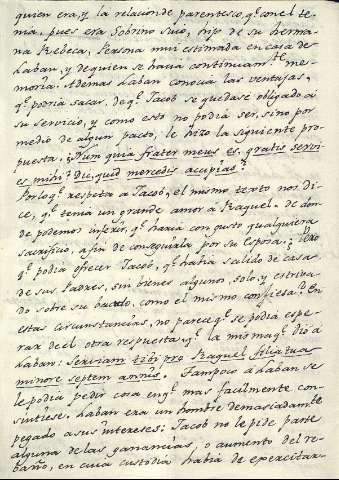 quien era, y la relacion de parentesco, qe. con el te-
nia, pues era Sobrino suio, hijo de su herma-
na Rebeca, Persona mui estimada en casa de
Laban, y de quien se havia continuamte. me-
moria. Ademas Laban conocia las ventajas,
qe. podria sacar, de qe. Jacob se quedase obligado à
su servicio, y como esto no podia ser, sino por
medio de algun pacto, le hizo la siguiente pro-
puesta. ¿Num quia frater meus es, gratis servi-
es mihi? Dic, quid mercedis accipias?
Por lo qe. respeta à Jacob, el mismo texto nos di-
ce, qe. tenia un grande amor à Raquel. De don-
de podemos inferir, qe. haria con gusto qualquiera
sacrificio, a fin de conseguirla por su Esposa. ¿Pero
qe. podia ofrecer Jacob, qe. habia salido de casa
de sus Padres, sin bienes algunos, solo, y estriva-
do sobre su baculo, como el mismo confiesa? En
estas circunstancias, no parece qe. se podia espe-
rar de el otra respuesta, qe. la misma qe. diò à
Laban: Serviam tibi pro Raquel filia tua
minore septem annis. Tampoco à Laban se
le podia pedir cosa en qe. mas facilmente con-
sintiese. Laban era un hombre demasiadamte.
pegado a sus intereses: Jacob no le pide parte
alguna de las ganancias, o aumento del re-
baño, en cuia custodia habia de exercitar-